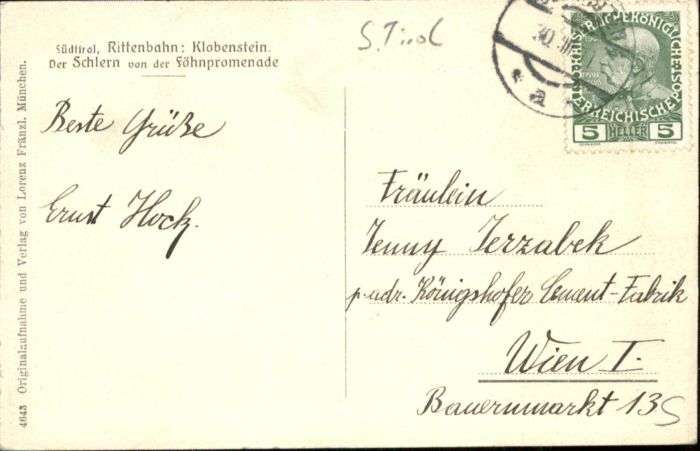 Südtirol, Rittenbahn: Klobenstein.
Der Schlern von der Föhnpromenade
S. Tirol
KAISERLICHE KÖNIGLICHE ÖSTERREICHISCHE POST
5 HELLER 5
Beste Grüße
Ernst Hock.
Fräulein
Jenny Jerzabek
p. adr. Königshofer Cement-Fabrik
Wien I.
Bauernmarkt 13
S
4643 Originalaufnahme und Verlag von Lorenz Fränzl, München.